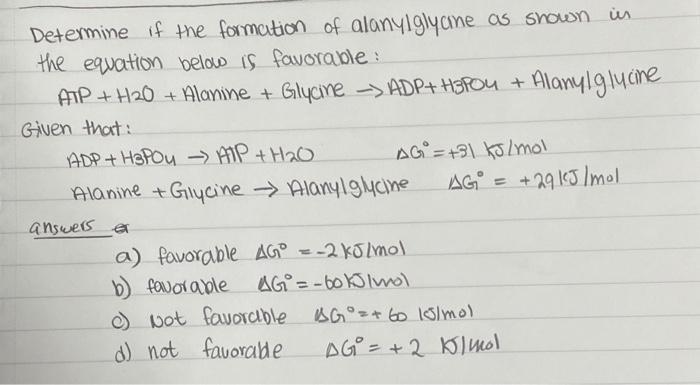 Determine if the formation of alanylglycine as shown in
the equation below is favorable:
ATP + H2O + Alanine + Glycine → ADP + H3PO4 + Alanylglycine
Given that:
ADP + H3PO4 → ATP + H2O ΔG° = +31 kJ/mol
Alanine + Glycine → Alanylglycine ΔG° = +29 kJ/mol
answers
a) favorable ΔG° = -2 kJ/mol
b) favorable ΔG° = -60 kJ/mol
c) Not favorable ΔG° = + 60 kJ/mol
d) not favorable ΔG° = + 2 kJ/mol